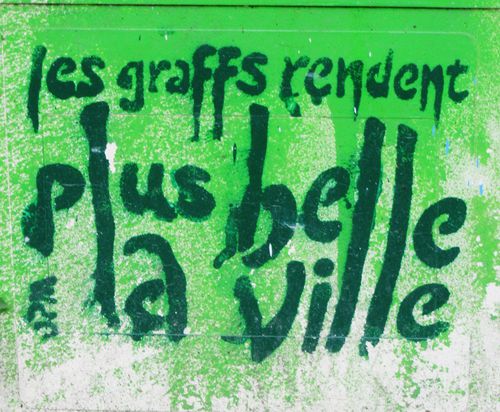 les graffs rendent
plus belle
la ville